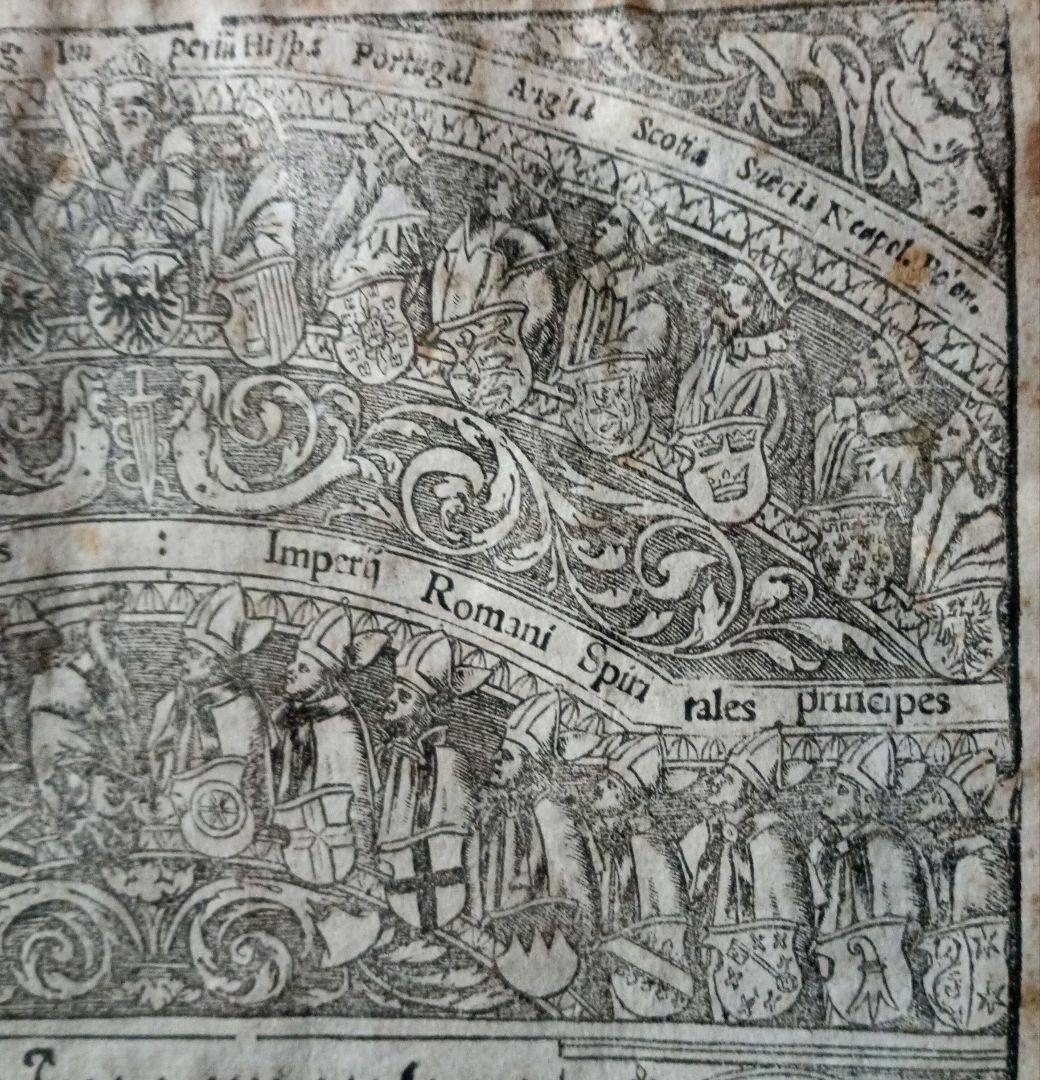 Im periū Hispã Portugal Angliã Scotiã Sueciã Neapol. Polon.
s : Imperij Romani Spiri tales principes